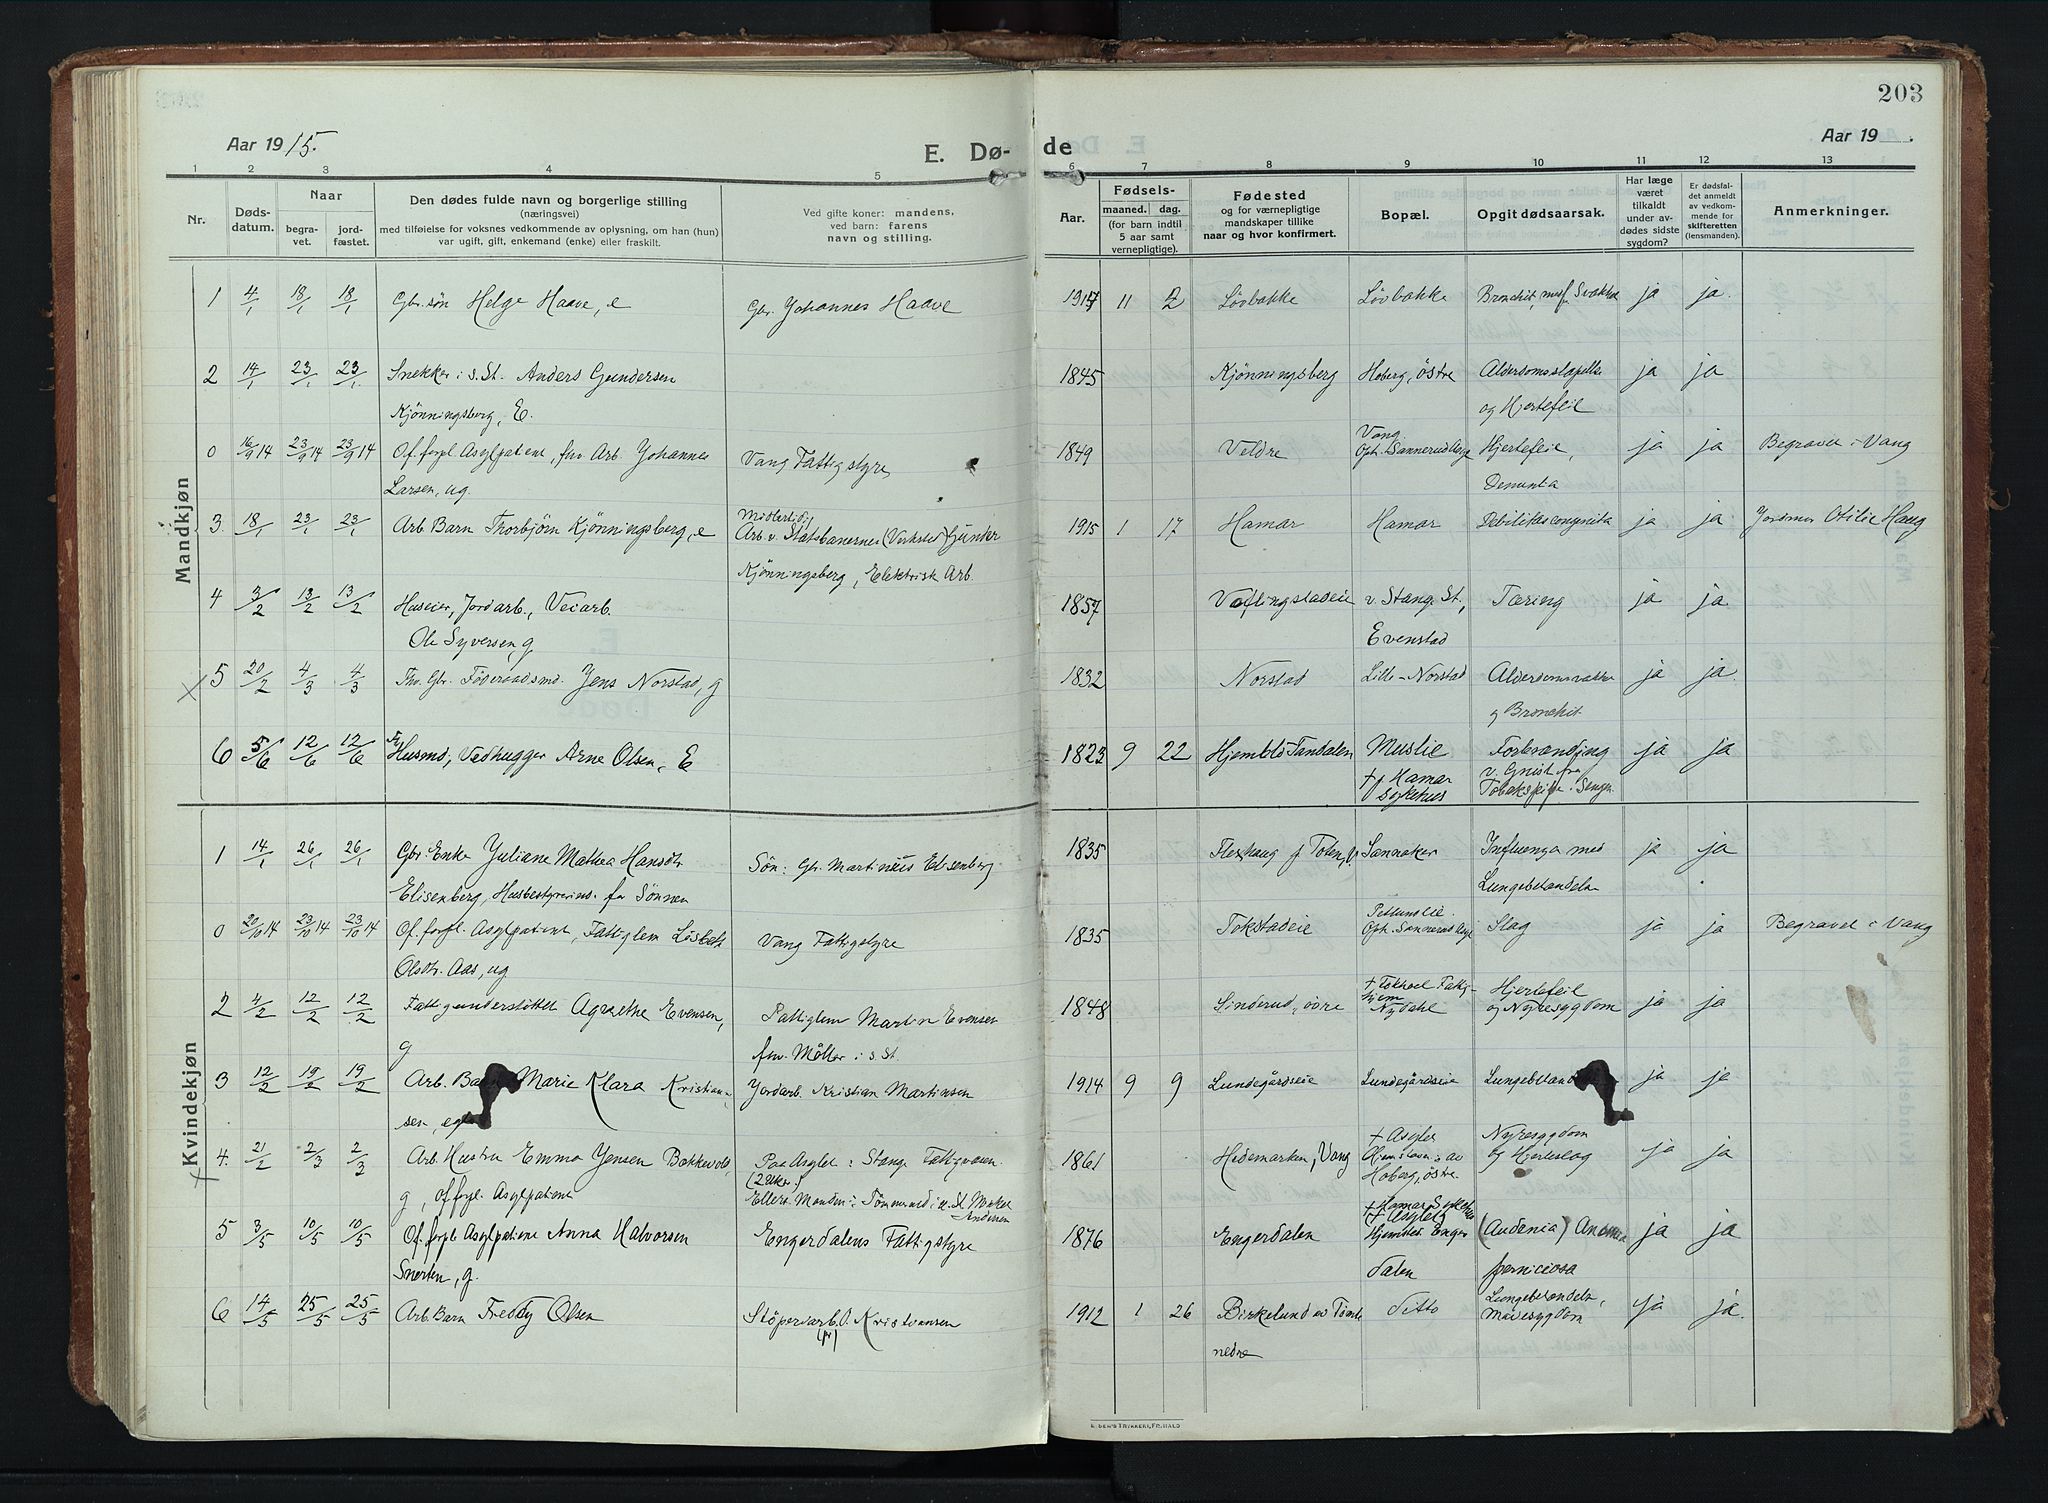 203
Aar 1915.
E. Dø-
de
Aar 19 .
1 2 3 4 5 6 7 8 9 10 11 12 13
Nr.
Døds-
datum.
Naar
begra-
vet.
jord-
fæstet.
Den dødes fulde navn og borgerlige stilling
(næringsvei)
med tilføielse for voksnes vedkommende av oplysning, om han (hun)
var ugift, gift, enkemand (enke) eller fraskilt.
Ved gifte koner: mandens,
ved barn: farens
navn og stilling.
Aar.
Fødsels-
maaned. dag.
(for barn indtil
5 aar samt
vernepligtige).
Fødested
og for værnepligtige
mandskaper tillike
naar og hvor konfirmert.
Bopæl.
Opgit dødsaarsak.
Har læge
været
tilkaldt
under av-
dødes sidste
sygdom?
Er dødsfal-
det anmeldt
av vedkom-
mende for
skifteretten
(lensmanden).
Anmerkninger.
Mandkjøn
1 4/1 18/1 18/1 Gbr. søn Helge Haave, e Gbr. Johannes Haave 11 2 Løvbakke Løvbakke Bronchit, ja ja.
2 14/1 23/1 23/1 Snekker i s. St. Anders Gundersen 1845 Kjønningsberg Hoberg, østre ja ja
Kjønningsberg, E. og Hjertefeil
0 16/9 14 23/9 14 23/9 14 Of. forpl. Asylpatient, fhv. Arb. Johannes Vang Fattigstyre 1849 Veldre Vang Hjertefeil, ja ja Begravet i Vang
Larsen, ug. Dementia
3 18/1 23/1 23/1 Arb. Barn Thorbjørn Kjønningsberg, e Midlertid. 1915 1 17 Hamar Hamar Debilitas congenita ja ja Jordmor Otilie Haug
Arb. v. Statsbanernes (Verksted) Gunder
Kjønningsberg, Elektrisk Arb.
4 3/2 13/2 13/2 Huseier, Jordarb., Veiarb. 1857 v. Stange St., Tæring ja ja
Ole Syversen, g Evenstad
X 5 20/2 4/3 4/3 Fhv. Gbr. Føderaadsmd. Jens Norstad, g 1832 Norstad Lille-Norstad ja ja.
og Bronchit.
6 5/6 12/6 12/6 Fv Husmd, Vedhugger Arne Olsen, E 1823 9 22 Muslie Forbrænding ja ja
† i Hamar v. Gnist fra
Sykehus Tobakspipe i Sengen
Kvindekjøn
1 14/1 26/1 26/1 Gbr. Enke Juliane Mathea Hansdtr. Søn: Gbr. Martinius Elisenberg 1835 Sannaker Influenza med ja ja
Elisenberg, Husbestyrerind. for Sønnen Lungebetændelse
0 20/10 14 23/10 14 23/10 14 Of. forpl. Asylpatient, Fattiglem Lisbet Vang Fattigstyre 1835 Tokstadeie Slag ja ja Begravet i Vang
Olsdtr. Aas, ug
2 4/2 12/2 12/2 Fattigunderstøttet Agnethe Evensen, Fattiglem Martin Evensen 1848 Sinderud, øvre † Tokhoel Fattig- Hjertefeil ja ja
g fhv. Møller i s. St. hjem Nydahl og Nyresygdom
3 12/2 19/2 19/2 Arb. Barn Marie Klara Kristian- Jordarb. Kristian Martinsen 1914 9 9 Lundegårdseie Lundegårdseie ja ja
sen, egte
4. 21/2 2/3 2/3 Arb. Hustru Emma Jensen Bakkevold Paa Asylet i Stange Fattigvæsen. 1861 Hedemarken, Vang † Asylet Nyresygdom ja ja
g, of. forpl. Asylpatient Hoberg, østre. og Hjerteslag
5 3/5 10/5 10/5 Of. forpl. Asylpatient Anna Halvorsen Engerdalens Fattigstyre 1876 Engerdalen † Hamar Sykehus ja ja
Snerten, g. Hjemsted. Enger
dalen perniciosa
6 14/5 25/5 25/5 Arb. Barn Freddy Olsen Støperiarb. O. Kristiansen 1912 1 26 Birkelund av Tomte Ditto Lungebetændelse, ja ja.
nedre
E. SEM'S TRYKKERI, FR.HALD